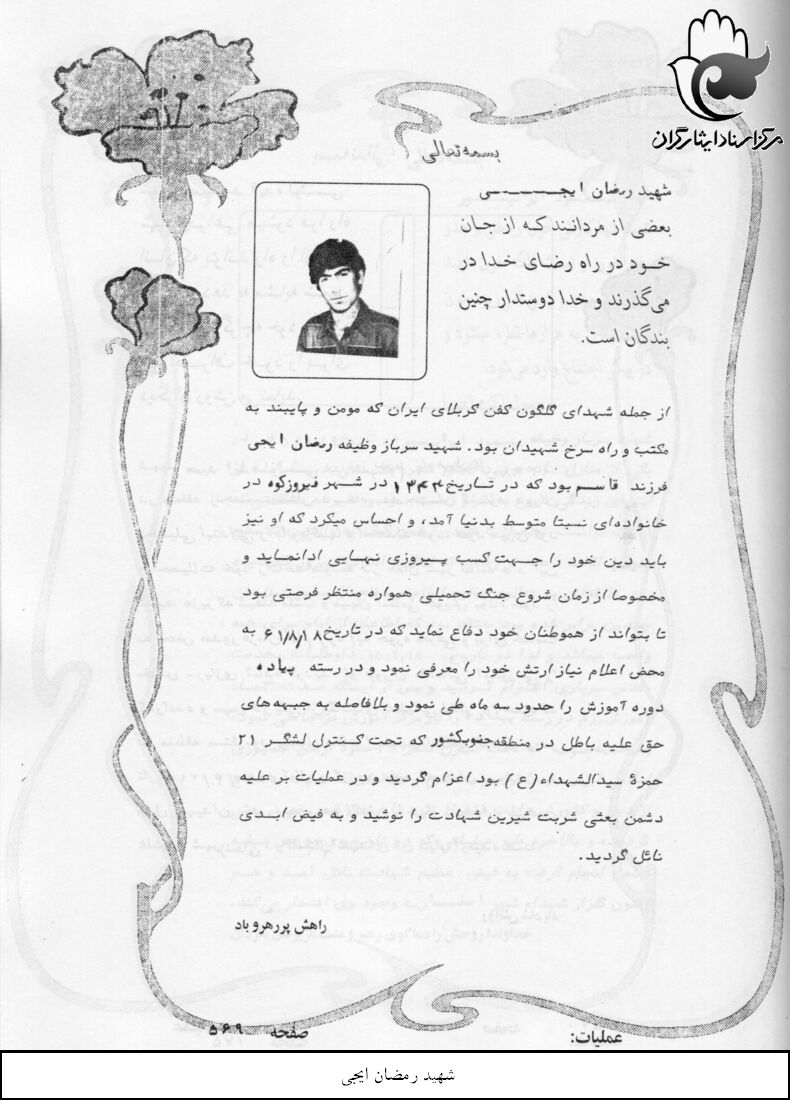 مرکز اسناد ایثارگران
بسمه تعالی
شهید رمضان ایجـــــی
بعضی از مردانند که از جان
خود در راه رضای خدا در
می‌گذرند و خدا دوستدار چنین
بندگان است.
از جمله شهدای گلگون کفن کربلای ایران که مومن و پایبند به
مکتب و راه سرخ شهیدان بود. شهید سرباز وظیفه رمضان ایجی
فرزند قاسم بود که در تاریخ ۱۳۴۴ در شهر فیروزکوه در
خانواده‌ای نسبتا متوسط بدنیا آمد، و احساس میکرد که او نیز
باید دین خود را جهت کسب پیروزی نهایی ادا نماید و
مخصوصا از زمان شروع جنگ تحمیلی همواره منتظر فرصتی بود
تا بتواند از هموطنان خود دفاع نماید که در تاریخ ۶۱/۸/۱۸ به
محض اعلام نیاز ارتش خود را معرفی نمود و در رسته پیاده
دوره آموزش را حدود سه ماه طی نمود و بلافاصله به جبهه‌های
حق علیه باطل در منطقه جنوب کشور که تحت کنترل لشگر ۲۱
حمزهٔ سیدالشهداء (ع) بود اعزام گردید و در عملیات بر علیه
دشمن بعثی شربت شیرین شهادت را نوشید و به فیض ابدی
نائل گردید.
راهش پر رهرو باد
عملیات: صفحه ۵۶۹
شهید رمضان ایجی